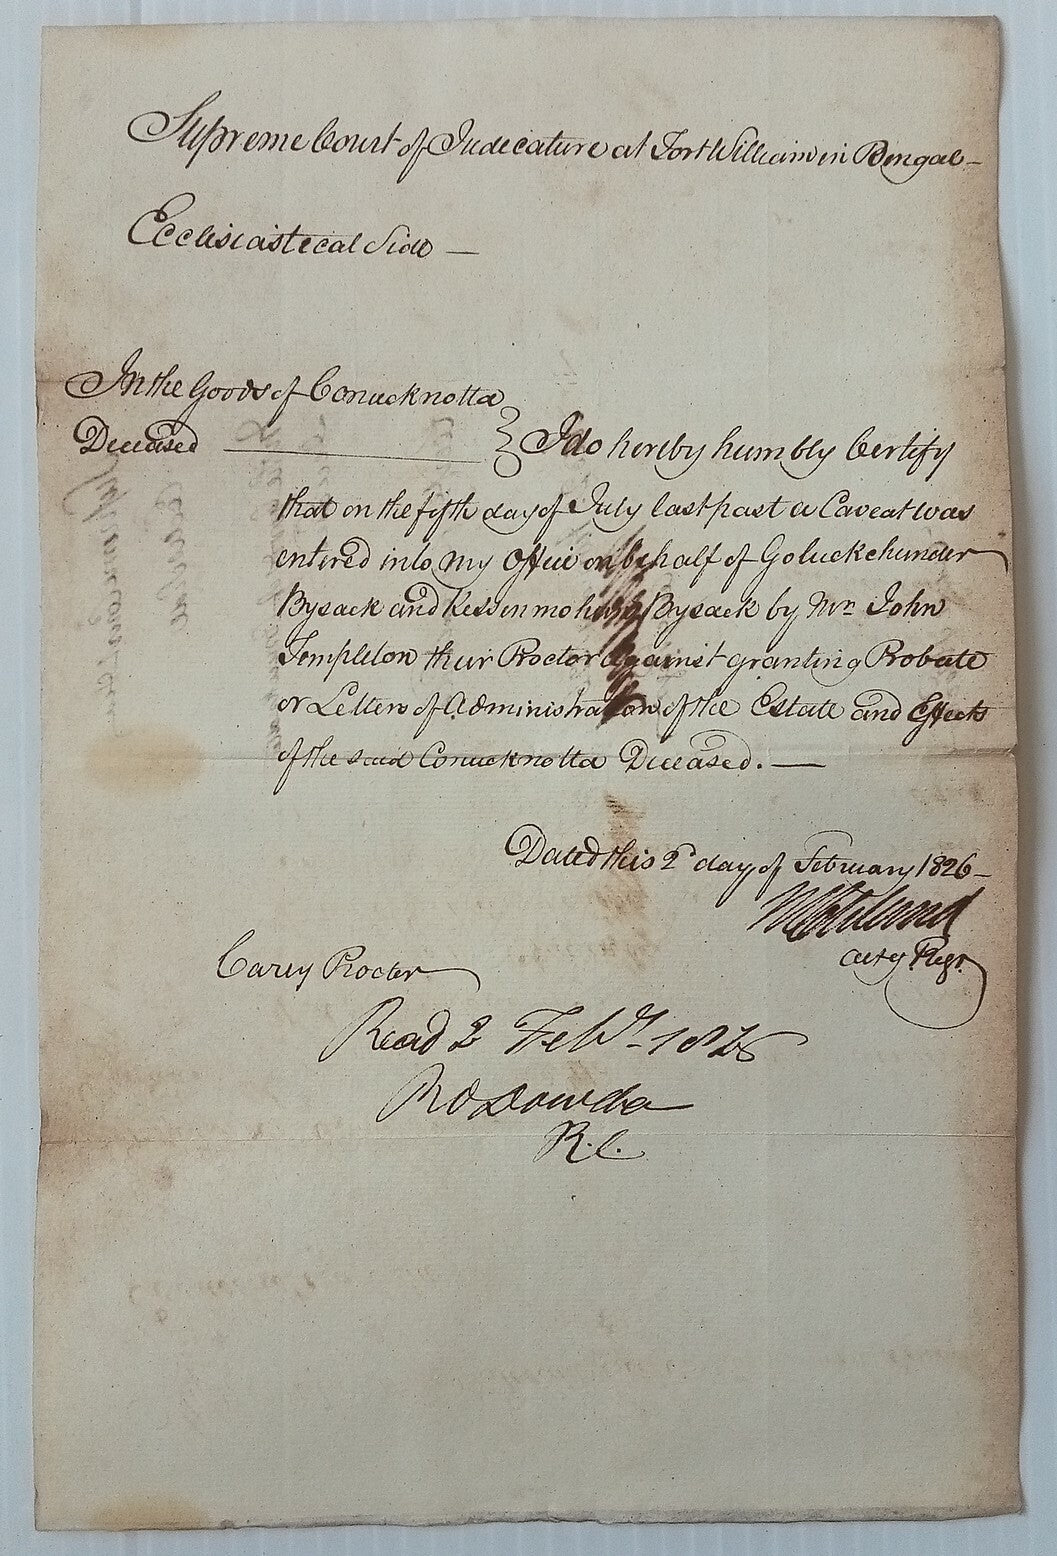 Supreme Court of Judicature at Fort William in Bengal —
Ecclesiastecal Side —
In the Goods of Conucknotta
Deceased } I do hereby humbly Certify
that on the fifth day of July last past a Caveat was
entered into my Office on behalf of Goluckchunder
Bysack and Kissenmohun Bysack by Mr. John
Templeton their Proctor against granting Probate
or Letters of Administration of the Estate and Effects
of the said Conucknotta Deceased. —
Dated this 2d day of February 1826 —
Regr.
Carey Procter
Read 2 Feby. 1826
R.C.